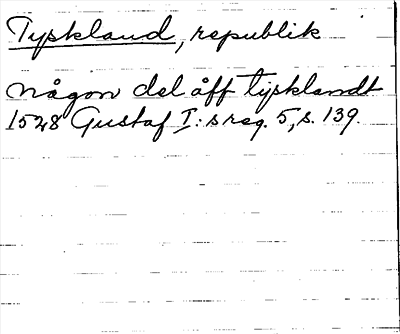 Tyskland, republik
någon del åff tijsklandt
1528 Gustaf I:s reg. 5, s. 139.